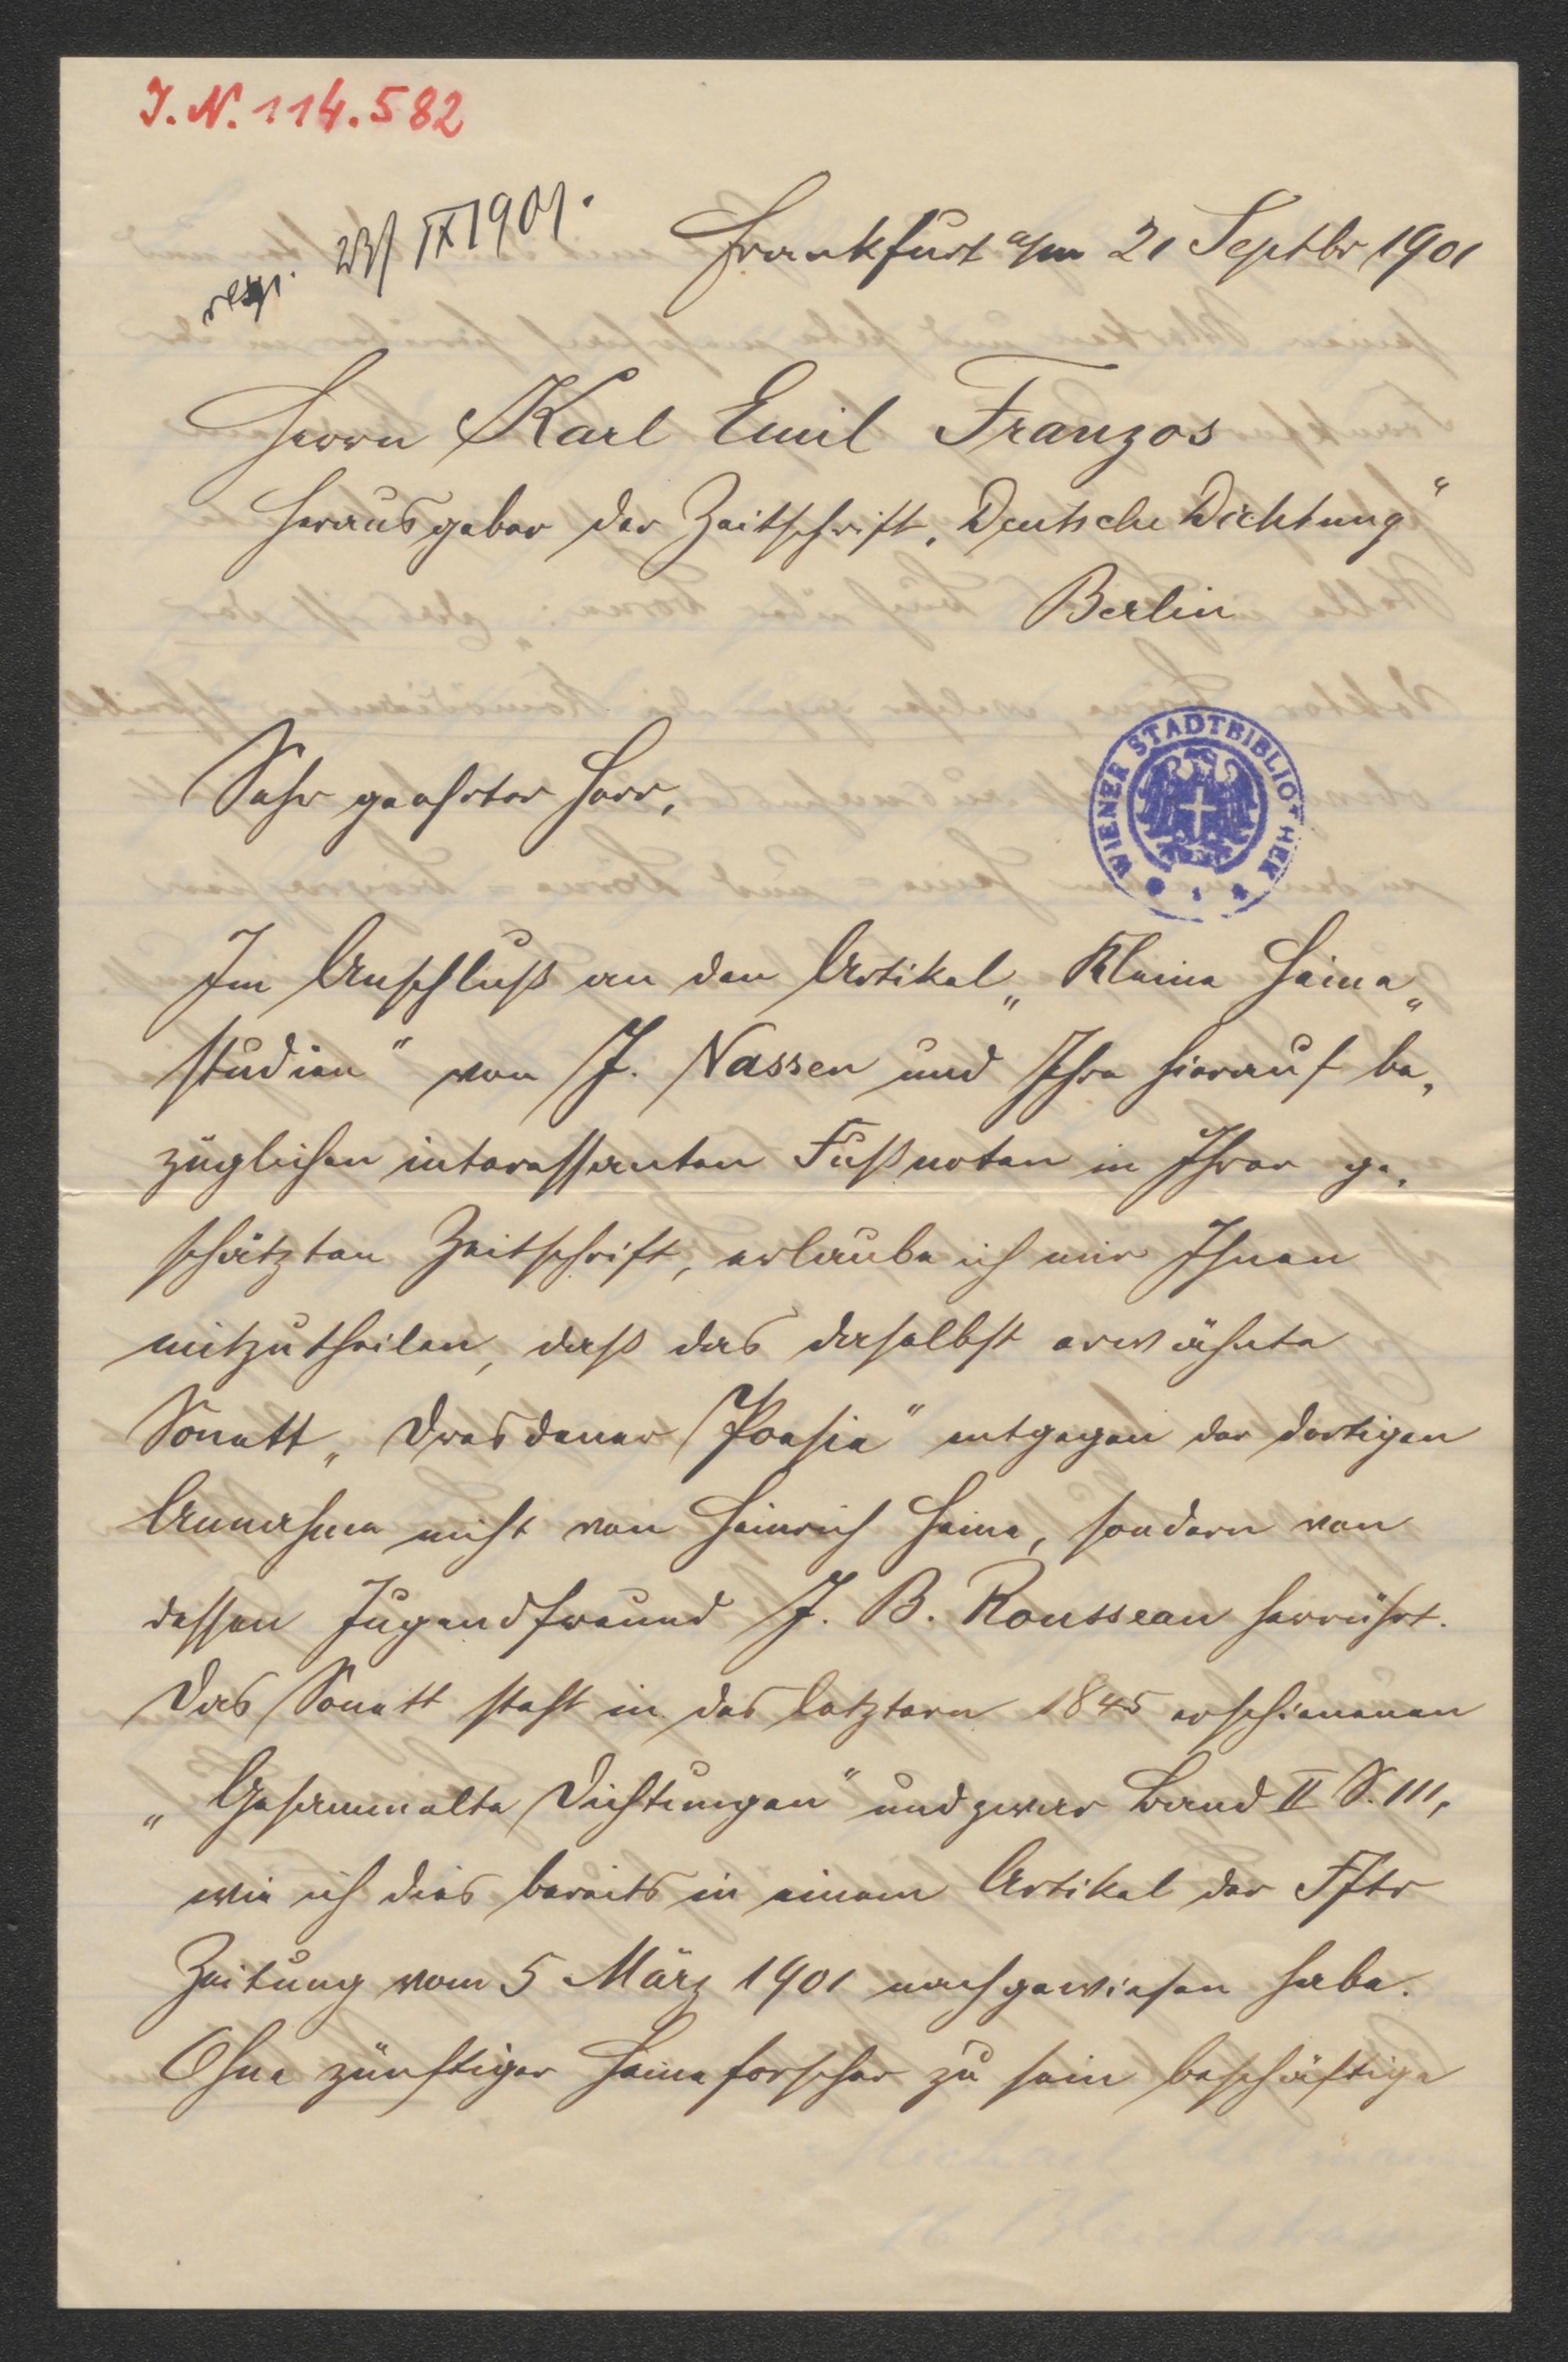 J. N. 114.582
resp. 23/IX 1901.
Frankfurt a/m 21 Septbr 1901
Herrn Karl Emil Franzos
Herausgeber der Zeitschrift „Deutsche Dichtung“
Berlin
WIENER STADTBIBLIOTHEK
Sehr geehrter Herr,
Im Anschluß an den Artikel „Kleine Heine„
studien“ von J. Nassen und Ihre hierauf be„
züglichen interessanten Fußnoten in Ihrer ge„
schätzten Zeitschrift, erlaube ich mir Ihnen
mitzutheilen, daß das daselbst erwähnte
Sonett „Dresdener Poesie“ entgegen der dortigen
Annahme nicht von Heinrich Heine, sondern von
dessen Jugendfreund J. B. Rousseau herrührt.
Das Sonett steht in des letztern 1845 erschienenen
„Gesammelte Dichtungen“ und zwar Band II S. 111,
wie ich dies bereits in einem Artikel der Fftr
Zeitung vom 5 März 1901 nachgewiesen habe.
Ohne zünftiger Heineforscher zu sein beschäftige